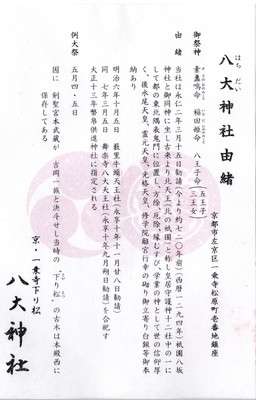 八大神社由緒
はち だい
京都市左京区一乗寺松原町壱番地鎮座
御祭神
素盞嗚命 稲田姫命 八王子命 五王子 三王女
由緒
当社は永仁二年三月十五日勧請(今より約七二〇年前)(西暦一二九四年)祇園八坂
神社と御同神に坐し古来より「北の祇園」と称し北天王(北の祇園)と称し皇居守護神十二社中の一に
して都の東北隅表鬼門に位置し、方除、厄除、縁むすび、学業の神として世の信仰厚
く、後水尾天皇、霊元天皇、光格天皇、修学院離宮行幸の砌り御立寄り白銀等御奉
納あり
明治六年十月五日 藪里牛頭天王社(永享十年十一月廿八日勧請)
同 七年三月五日 舞楽寺八大天王社(永享十年九月朔日勧請)を合祀す
大正十三年幣帛供進神社に指定される
例大祭 五月四・五日
因に 剣聖宮本武蔵が 吉岡一派と決斗せし当時の「下り松」の古木は本殿西に
保存してある
京・一乗寺下り松
八大神社